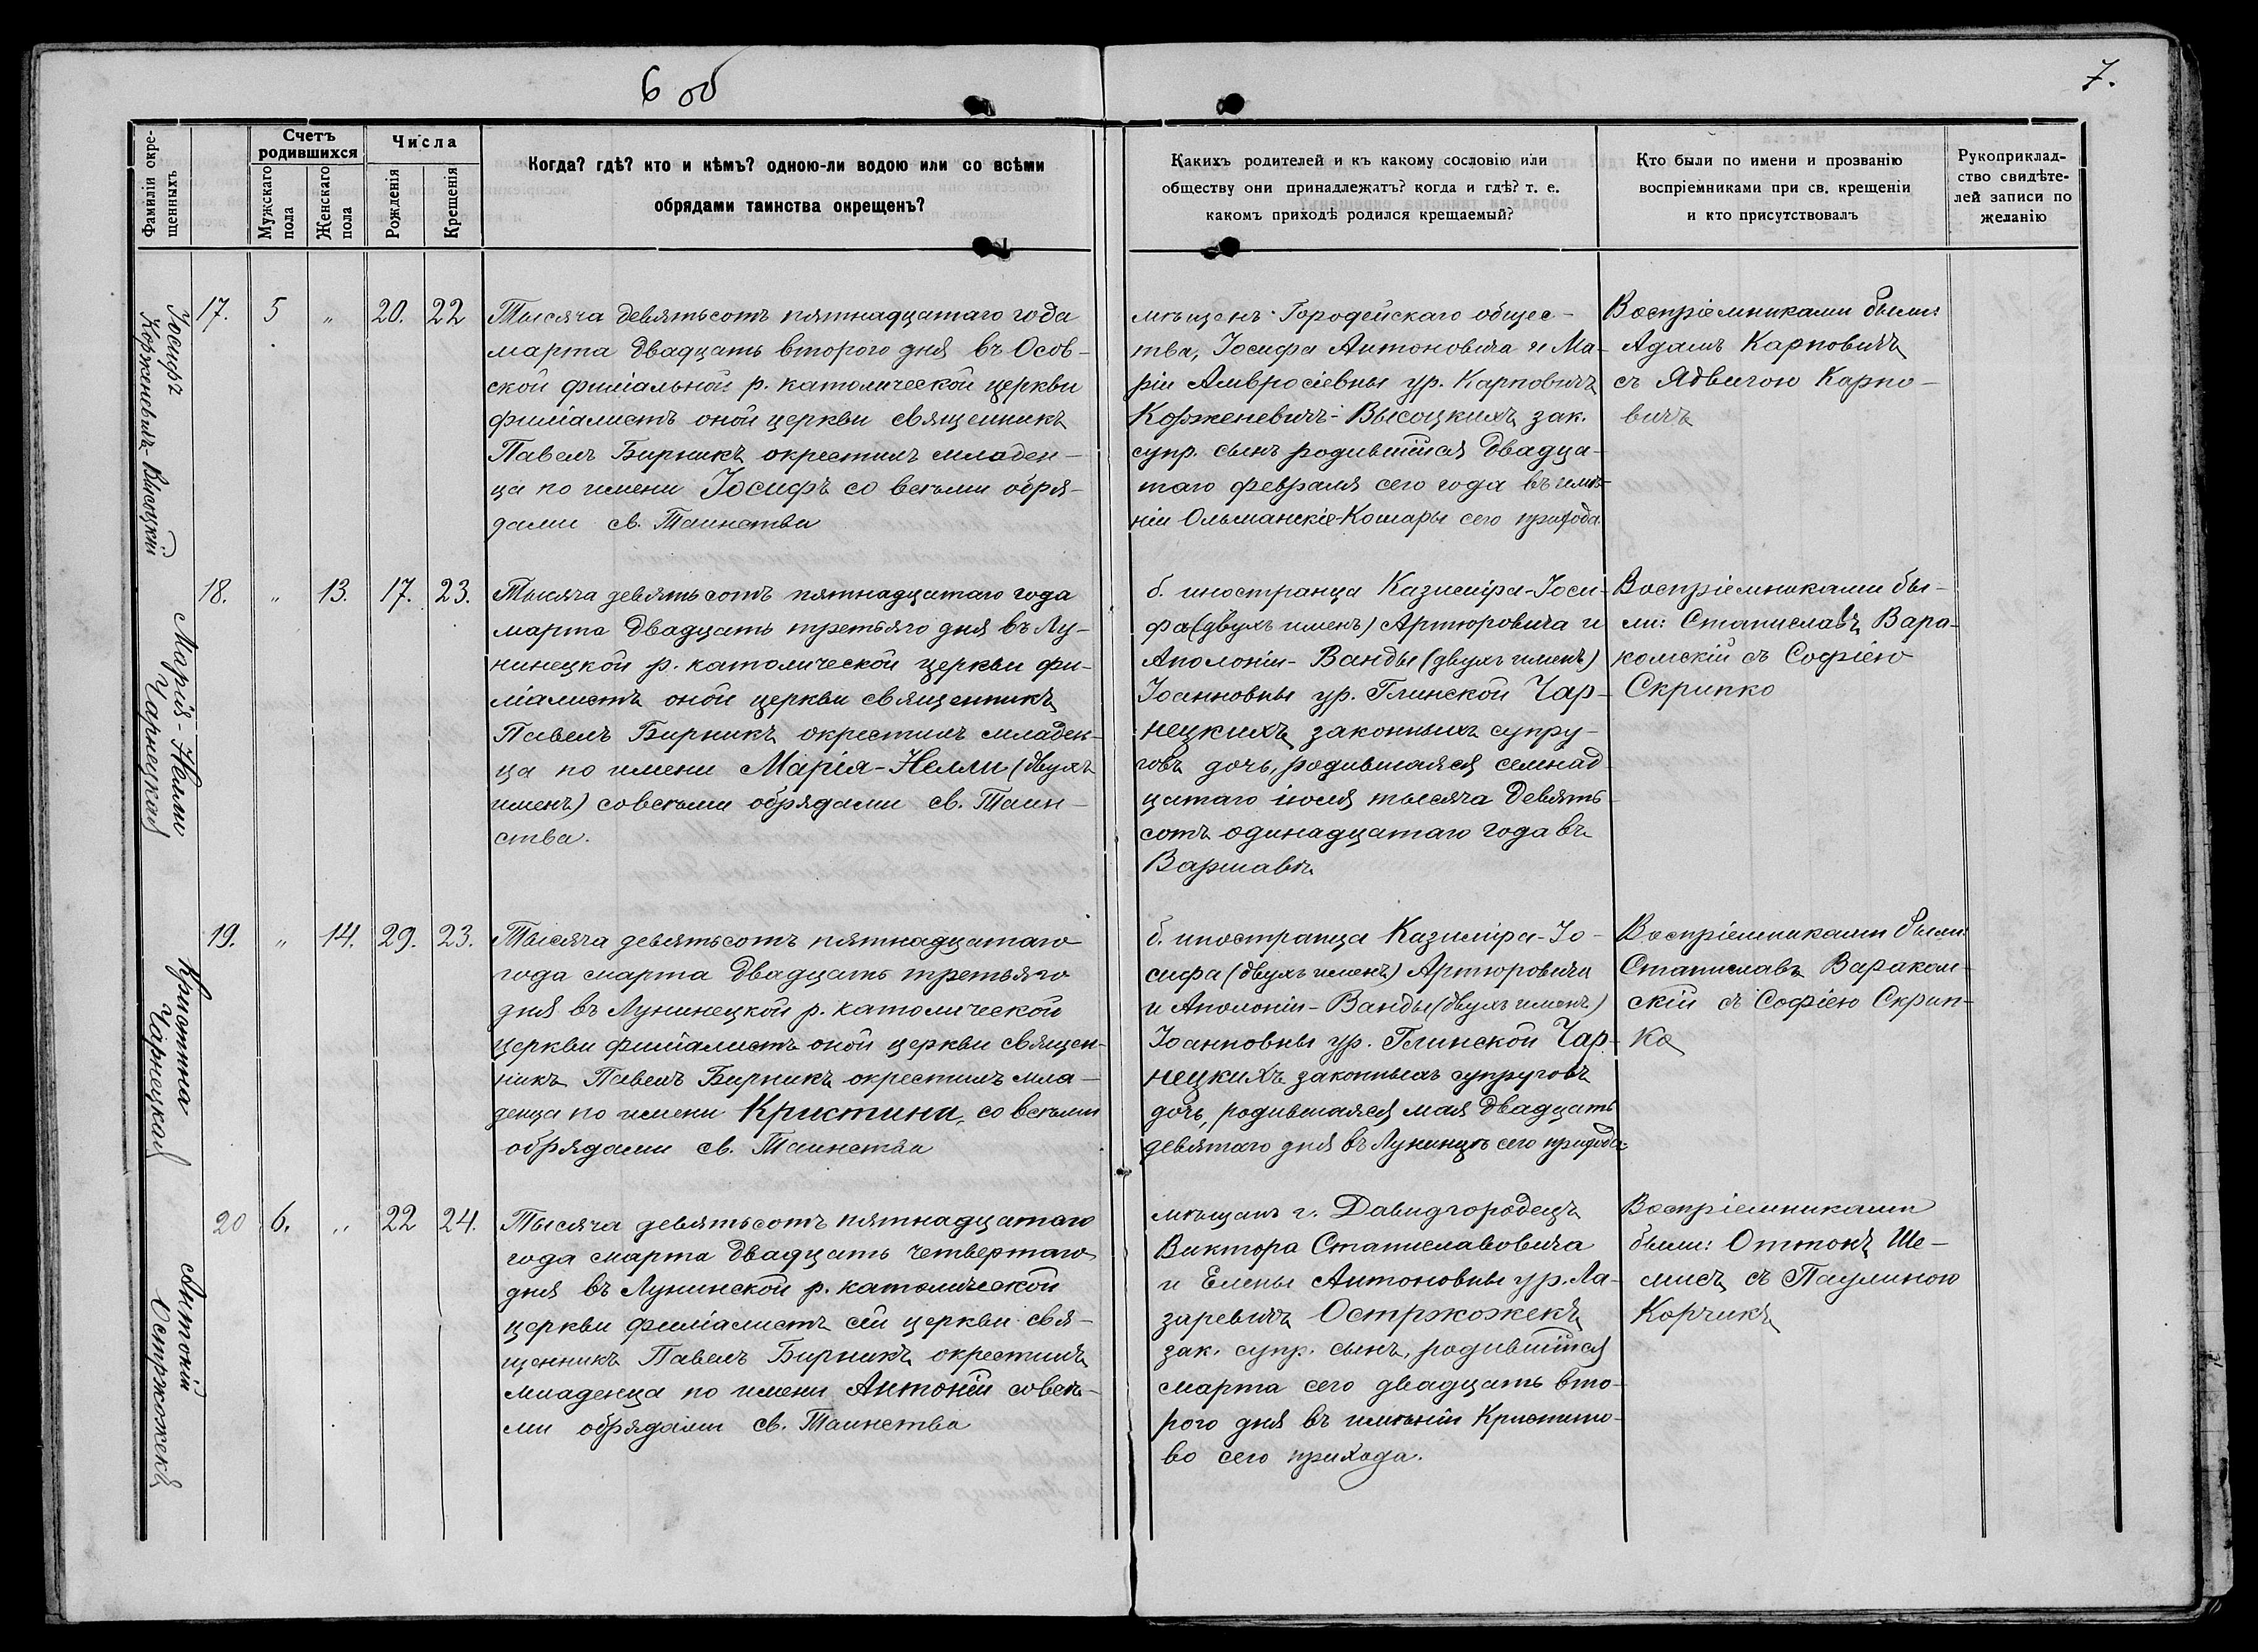 6 об
7.
Фамиліи окре-
щенныхъ
Счетъ
родившихся
Мужскаго
пола
Женскаго
пола
Числа
Рожденія
Крещенія
Когда? гдѣ? кто и кѣмъ? одною-ли водою или со всѣми
обрядами таинства окрещенъ?
Какихъ родителей и къ какому сословію или
обществу они принадлежатъ? когда и гдѣ? т. е.
какомъ приходѣ родился крещаемый?
Кто были по имени и прозванію
воспріемниками при св. крещеніи
и кто присутствовалъ
Рукоприклад-
ство свидѣте-
лей записи по
желанію
Іосифъ
Корженевичъ-Высоцкій
17. 5 " 20. 22
Тысяча девятьсотъ пятнадцатаго года
марта двадцать второго дня въ Осов-
ской филіальной р. католической церкви
филіалистъ оной церкви священникъ
Павелъ Бирникъ окрестилъ младен-
ца по имени Іосифъ со всѣми обря-
дами св. Таинства
мѣщанъ Городейскаго общес-
тва, Іосифа Антоновича и Ма-
ріи Амвросіевны ур. Карповичъ
Корженевичъ-Высоцкихъ зак.
супр. сынъ родившійся двадца-
таго февраля сего года въ имѣ-
ніи Ольманскіе-Кошары сего прихода.
Воспріемниками были:
Адамъ Карповичъ
съ Ядвигою Карпо-
вичъ
Марія-Нелли
Чарнецкая
18. " 13. 17. 23.
Тысяча девятьсотъ пятнадцатаго года
марта двадцать третьяго дня въ Лу-
нинецкой р. католической церкви фи-
ліалистъ оной церкви священникъ
Павелъ Бирникъ окрестилъ младен-
ца по имени Марія-Нелли (двухъ
именъ) со всѣми обрядами св. Таин-
ства.
б. иностранца Казиміра-Іоси-
фа (двухъ именъ) Артюровича и
Аполоніи-Ванды (двухъ именъ)
Іоанновны ур. Глинской Чар-
нецкихъ законныхъ супру-
говъ дочь, родившаяся семнад-
цатаго іюля тысяча девять-
сотъ одинадцатаго года въ
Варшавѣ
Воспріемниками бы-
ли: Станиславъ Вара-
комскій съ Софіею
Скрипко
Кристина
Чарнецкая
19. " 14. 29. 23.
Тысяча девятьсотъ пятнадцатаго
года марта двадцать третьяго
дня въ Лунинецкой р. католической
церкви филіалистъ оной церкви священ-
никъ Павелъ Бирникъ окрестилъ мла-
денца по имени Кристина, со всѣми
обрядами св. Таинства
б. иностранца Казиміра-Іо-
сифа (двухъ именъ) Артюровича
и Аполоніи-Ванды (двухъ именъ)
Іоанновны ур. Глинской Чар-
нецкихъ законныхъ супруговъ
дочь, родившаяся мая двадцать
девятаго дня въ Лунинцѣ сего прихода.
Воспріемниками были:
Станиславъ Вараком-
скій съ Софіею Скрип-
ко
Антоній
Остржожекъ
20 6. " 22 24.
Тысяча девятьсотъ пятнадцатаго
года марта двадцать четвертаго
дня въ Лунинской р. католической
церкви филіалистъ сей церкви свя-
щенникъ Павелъ Бирникъ окрестилъ
младенца по имени Антоній со всѣ-
ми обрядами св. Таинства
мѣщанъ г. Давидгородецъ
Виктора Станиславовича
и Елены Антоновны ур. Ла-
заревичъ Остржожекъ
зак. супр. сынъ, родившійся
марта сего двадцать вто-
рого дня въ имѣніи Кристино-
во сего прихода.
Воспріемниками
были: Оттонъ Ше-
мисъ съ Паулиною
Корчикъ